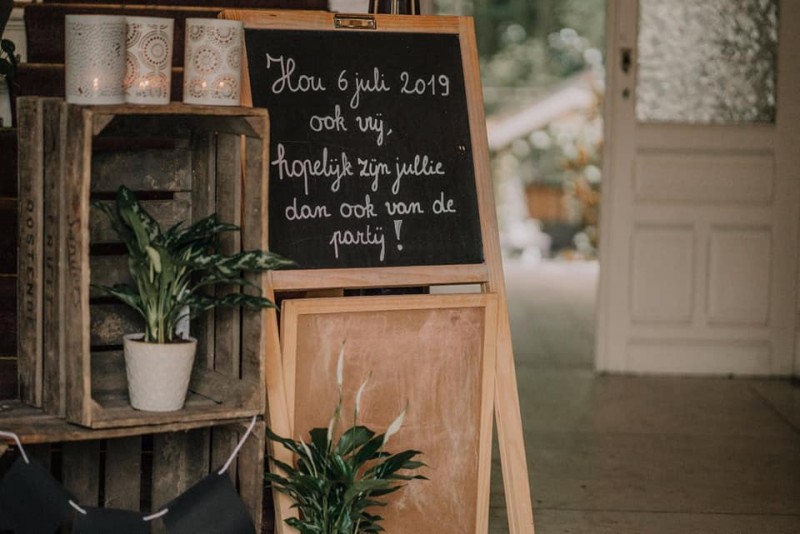 Hou 6 juli 2019
ook vrij,
hopelijk zijn jullie
dan ook van de
partij!
OOSTENDE